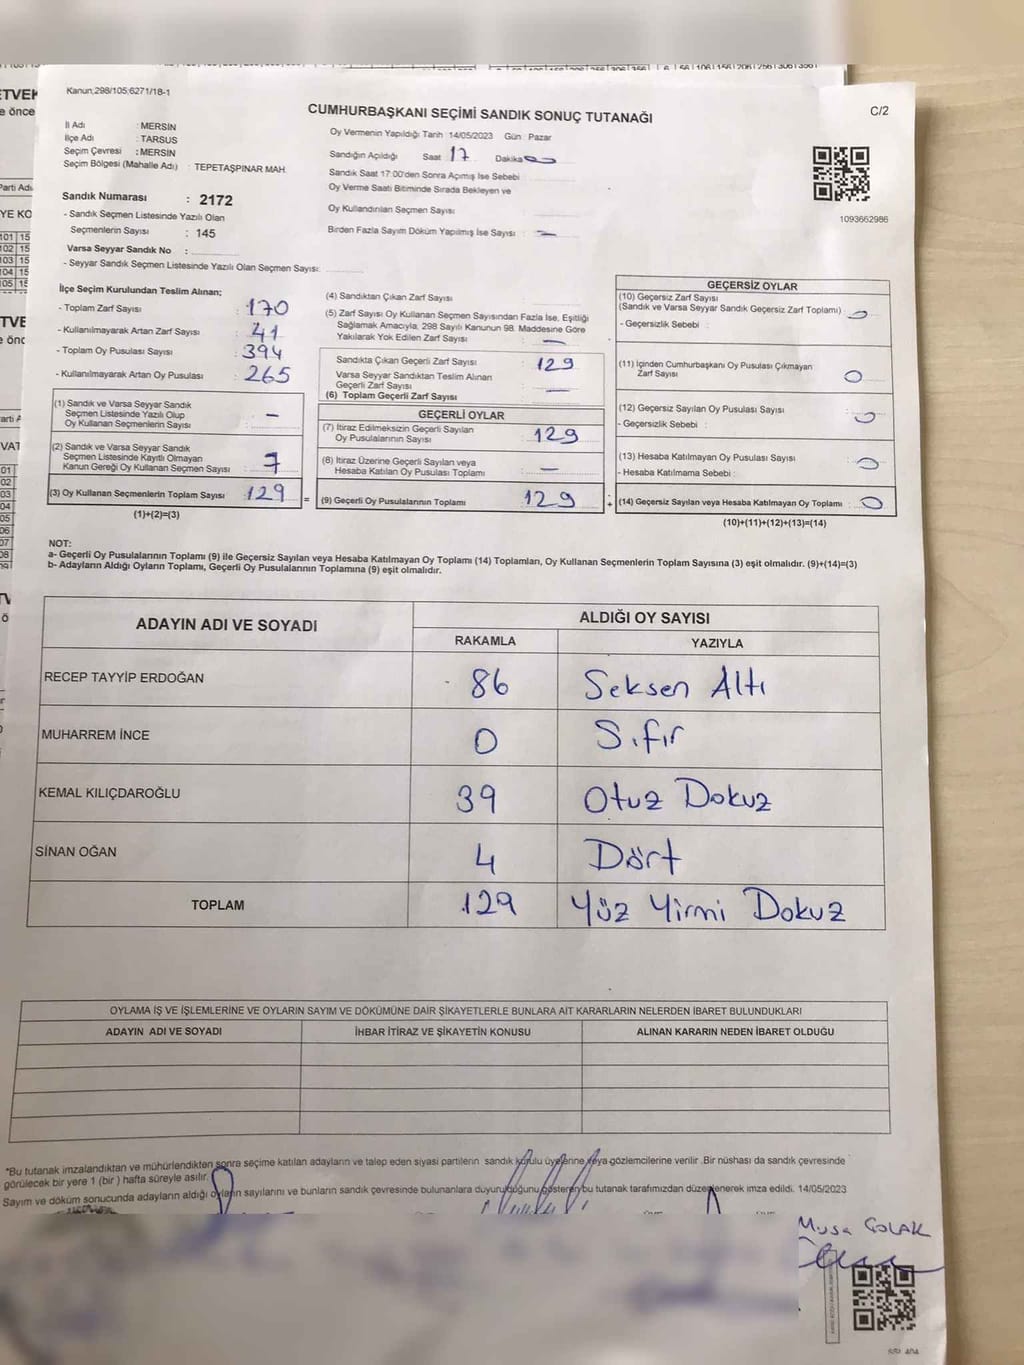 Kanun;298/105;6271/18-1
CUMHURBAŞKANI SEÇİMİ SANDIK SONUÇ TUTANAĞI
C/2
İl Adı : MERSİN
İlçe Adı : TARSUS
Seçim Çevresi : MERSİN
Seçim Bölgesi (Mahalle Adı) : TEPETAŞPINAR MAH.
Sandık Numarası : 2172
- Sandık Seçmen Listesinde Yazılı Olan
Seçmenlerin Sayısı : 145
Varsa Seyyar Sandık No :
- Seyyar Sandık Seçmen Listesinde Yazılı Olan Seçmen Sayısı:
Oy Vermenin Yapıldığı Tarih 14/05/2023 Gün Pazar
Sandığın Açıldığı Saat 17 Dakika
Sandık Saat 17:00'den Sonra Açımış İse Sebebi
Oy Verme Saati Bitiminde Sırada Bekleyen ve
Oy Kullandırılan Seçmen Sayısı
Birden Fazla Sayım Döküm Yapılmış İse Sayısı : -
1093662986
İlçe Seçim Kurulundan Teslim Alınan;
- Toplam Zarf Sayısı : 170
- Kullanılmayarak Artan Zarf Sayısı : 41
- Toplam Oy Pusulası Sayısı : 394
- Kullanılmayarak Artan Oy Pusulası : 265
(1) Sandık ve Varsa Seyyar Sandık
Seçmen Listesinde Yazılı Olup
Oy Kullanan Seçmenlerin Sayısı : -
(2) Sandık ve Varsa Seyyar Sandık
Seçmen Listesinde Kayıtlı Olmayan
Kanun Gereği Oy Kullanan Seçmen Sayısı : 7
(3) Oy Kullanan Seçmenlerin Toplam Sayısı : 129
(1)+(2)=(3)
(4) Sandıktan Çıkan Zarf Sayısı
(5) Zarf Sayısı Oy Kullanan Seçmen Sayısından Fazla İse, Eşitliği
Sağlamak Amacıyla, 298 Sayılı Kanunun 98. Maddesine Göre
Yakılarak Yok Edilen Zarf Sayısı -
Sandıkta Çıkan Geçerli Zarf Sayısı 129
Varsa Seyyar Sandıktan Teslim Alınan
Geçerli Zarf Sayısı -
(6) Toplam Geçerli Zarf Sayısı
GEÇERLİ OYLAR
(7) İtiraz Edilmeksizin Geçerli Sayılan
Oy Pusulalarının Sayısı 129
(8) İtiraz Üzerine Geçerli Sayılan veya
Hesaba Katılan Oy Pusulası Toplamı -
= (9) Geçerli Oy Pusulalarının Toplamı 129 +
GEÇERSİZ OYLAR
(10) Geçersiz Zarf Sayısı
(Sandık ve Varsa Seyyar Sandık Geçersiz Zarf Toplamı) 0
- Geçersizlik Sebebi :
(11) İçinden Cumhurbaşkanı Oy Pusulası Çıkmayan
Zarf Sayısı 0
(12) Geçersiz Sayılan Oy Pusulası Sayısı 0
- Geçersizlik Sebebi :
(13) Hesaba Katılmayan Oy Pusulası Sayısı 0
- Hesaba Katılmama Sebebi :
(14) Geçersiz Sayılan veya Hesaba Katılmayan Oy Toplamı : 0
(10)+(11)+(12)+(13)=(14)
NOT:
a- Geçerli Oy Pusulalarının Toplamı (9) ile Geçersiz Sayılan veya Hesaba Katılmayan Oy Toplamı (14) Toplamları, Oy Kullanan Seçmenlerin Toplam Sayısına (3) eşit olmalıdır. (9)+(14)=(3)
b- Adayların Aldığı Oyların Toplamı, Geçerli Oy Pusulalarının Toplamına (9) eşit olmalıdır.
ADAYIN ADI VE SOYADI
ALDIĞI OY SAYISI
RAKAMLA YAZIYLA
RECEP TAYYİP ERDOĞAN 86 Seksen Altı
MUHARREM İNCE 0 Sıfır
KEMAL KILIÇDAROĞLU 39 Otuz Dokuz
SİNAN OĞAN 4 Dört
TOPLAM 129 Yüz Yirmi Dokuz
OYLAMA İŞ VE İŞLEMLERİNE VE OYLARIN SAYIM VE DÖKÜMÜNE DAİR ŞİKAYETLERLE BUNLARA AİT KARARLARIN NELERDEN İBARET BULUNDUKLARI
ADAYIN ADI VE SOYADI İHBAR İTİRAZ VE ŞİKAYETİN KONUSU ALINAN KARARIN NEDEN İBARET OLDUĞU
*Bu tutanak imzalandıktan ve mühürlendikten sonra seçime katılan adayların ve talep eden siyasi partilerin sandık kurulu üyelerine veya gözlemcilerine verilir .Bir nüshası da sandık çevresinde
görülecek bir yere 1 (bir ) hafta süreyle asılır.
Sayım ve döküm sonucunda adayların aldığı oyların sayılarını ve bunların sandık çevresinde bulunanlara duyurulduğunu gösteren bu tutanak tarafımızdan düzenlenerek imza edildi. 14/05/2023
Musa ÇOLAK